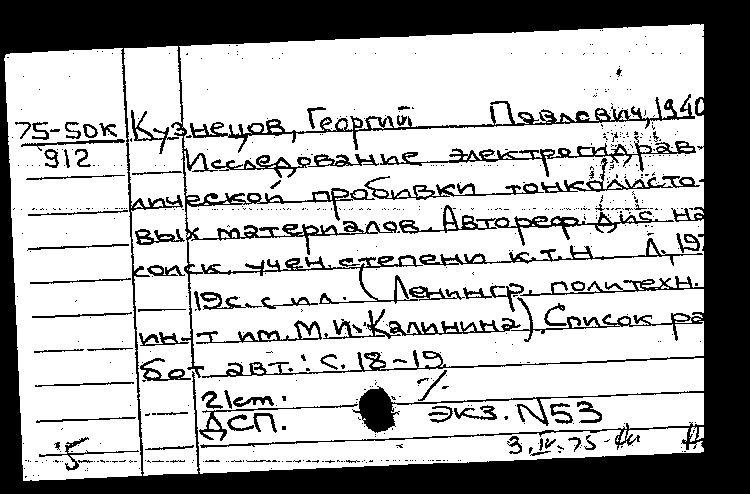 75-50к Кузнецов, Георгий Павлович, 1940
912 Исследование электрогидрав-
лической пробивки тонколисто-
вых материалов. Автореф. дис. на
соиск. учен. степени к.т.н. Л., 197
19с. с ил. (Ленингр. политехн.
ин-т им. М.И. Калинина). Список ра
бот авт.: с. 18-19
21см.
ДСП. экз. N53
5 3.IV.75